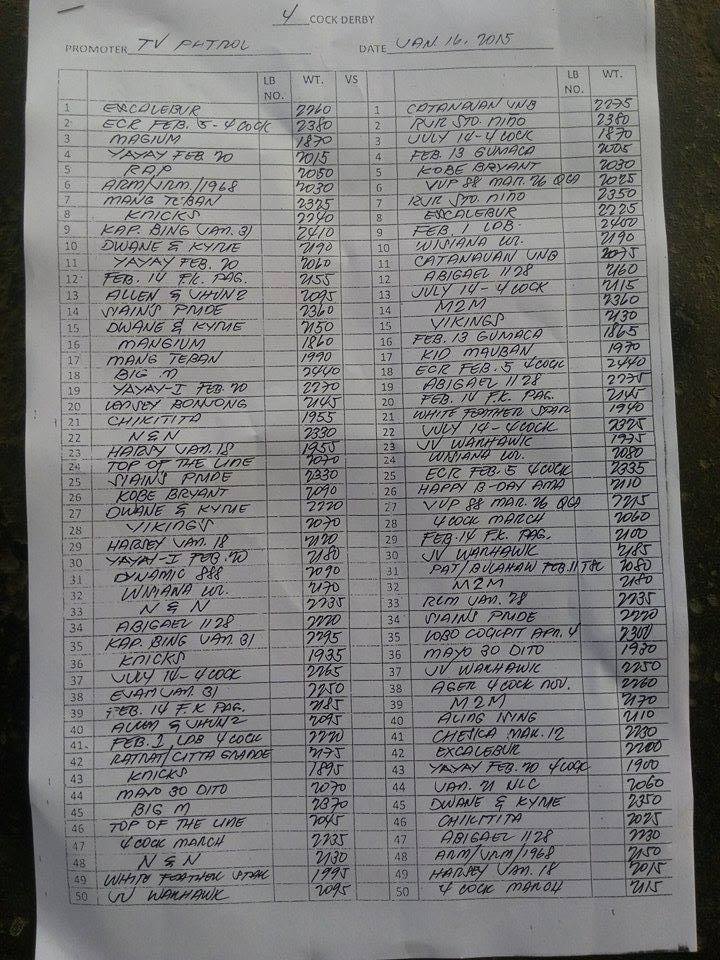 4 COCK DERBY
PROMOTER TV PATROL DATE JAN. 16, 2015
LB NO. WT. VS LB NO. WT.
1 EXCALEBUR 2260 1 CATANAUAN VNB 2275
2 ECR FEB. 5-4 COCK 2380 2 RJR STO. NIÑO 2380
3 MAGIUM 1870 3 JULY 14-4 COCK 1870
4 YAYAY FEB. 20 2015 4 FEB. 13 GUMACA 2005
5 RAP 2050 5 KOBE BRYANT 2030
6 ARM/JRM/1968 2030 6 VJP 88 MAR. 26 QGA 2025
7 MANG TEBAN 2325 7 RJR STO. NIÑO 2350
8 KNICKS 2240 8 EXCALEBUR 2225
9 KAP. BING JAN. 31 2410 9 FEB. 1 LDB 2400
10 DWANE & KYRIE 2190 10 WINIANA 2190
11 YAYAY FEB. 20 2060 11 CATANAUAN VNB 2075
12 FEB. 14 F.K. PAG. 2155 12 ABIGAEL 1128 2160
13 ALLEN & JHUNZ 2095 13 JULY 14-4 COCK 2115
14 SIAINS PRIDE 2360 14 M2M 2360
15 DWANE & KYRIE 2150 15 VIKINGS 2130
16 MANGIUM 1860 16 FEB. 13 GUMACA 1865
17 MANG TEBAN 1990 17 KID MAUBAN 1970
18 BIG M 2440 18 ECR FEB. 5 4 COCK 2440
19 YAYAY-I FEB. 20 2270 19 ABIGAEL 1128 2275
20 BONJONG 2145 20 FEB. 14 F.K. PAG. 2145
21 CHIKITITA 1955 21 WHITE FEATHER STAR 1940
22 N&N 2330 22 JULY 14-4 COCK 2325
23 HARSY JAN. 18 1955 23 JV WARHAWK 1975
24 TOP OF THE LINE 2070 24 WINIANA 2080
25 SIAINS PRIDE 2330 25 ECR FEB. 5 4 COCK 2335
26 KOBE BRYANT 2090 26 HAPPY B-DAY AMA 2110
27 DWANE & KYRIE 2220 27 VJP 88 MAR. 26 QGA 2215
28 VIKINGS 2070 28 4 COCK MARCH 2060
29 HARSEY JAN. 18 2120 29 FEB. 14 F.K. PAG. 2100
30 YAYAY-I FEB. 20 2180 30 JV WARHAWK 2185
31 DYNAMIC 888 2090 31 PAT/BULAHAW FEB. 11 2080
32 WINIANA 2170 32 M2M 2180
33 N&N 2235 33 RCM JAN. 28 2235
34 ABIGAEL 1128 2220 34 SIAINS PRIDE 2220
35 KAP. BING JAN. 31 2295 35 LOBO COCKPIT APR. 4 2300
36 KNICKS 1935 36 MAYO 30 DITO 1930
37 JULY 14-4 COCK 2265 37 JV WARHAWK 2250
38 EJAM JAN. 31 2250 38 AGER 4 COCK NOV. 2260
39 FEB. 14 F.K. PAG. 2185 39 M2M 2170
40 ALLEN & JHUNZ 2095 40 ALING NYING 2110
41 FEB. 1 LDB 4 COCK 2220 41 CHESKA MAR. 12 2230
42 RATRAT/CITTA GRANDE 2175 42 EXCALEBUR 2200
43 KNICKS 1895 43 YAYAY FEB. 20 4 COCK 1900
44 MAYO 30 DITO 2070 44 JAN. 21 NLC 2060
45 BIG M 2370 45 DWANE & KYRIE 2350
46 TOP OF THE LINE 2045 46 CHIKITITA 2025
47 4 COCK MARCH 2235 47 ABIGAEL 1128 2230
48 N&N 2130 48 ARM/JRM/1968 2150
49 WHITE FEATHER STAR 1995 49 HARSEY JAN. 18 2015
50 JV WARHAWK 2095 50 4 COCK MARCH 2115